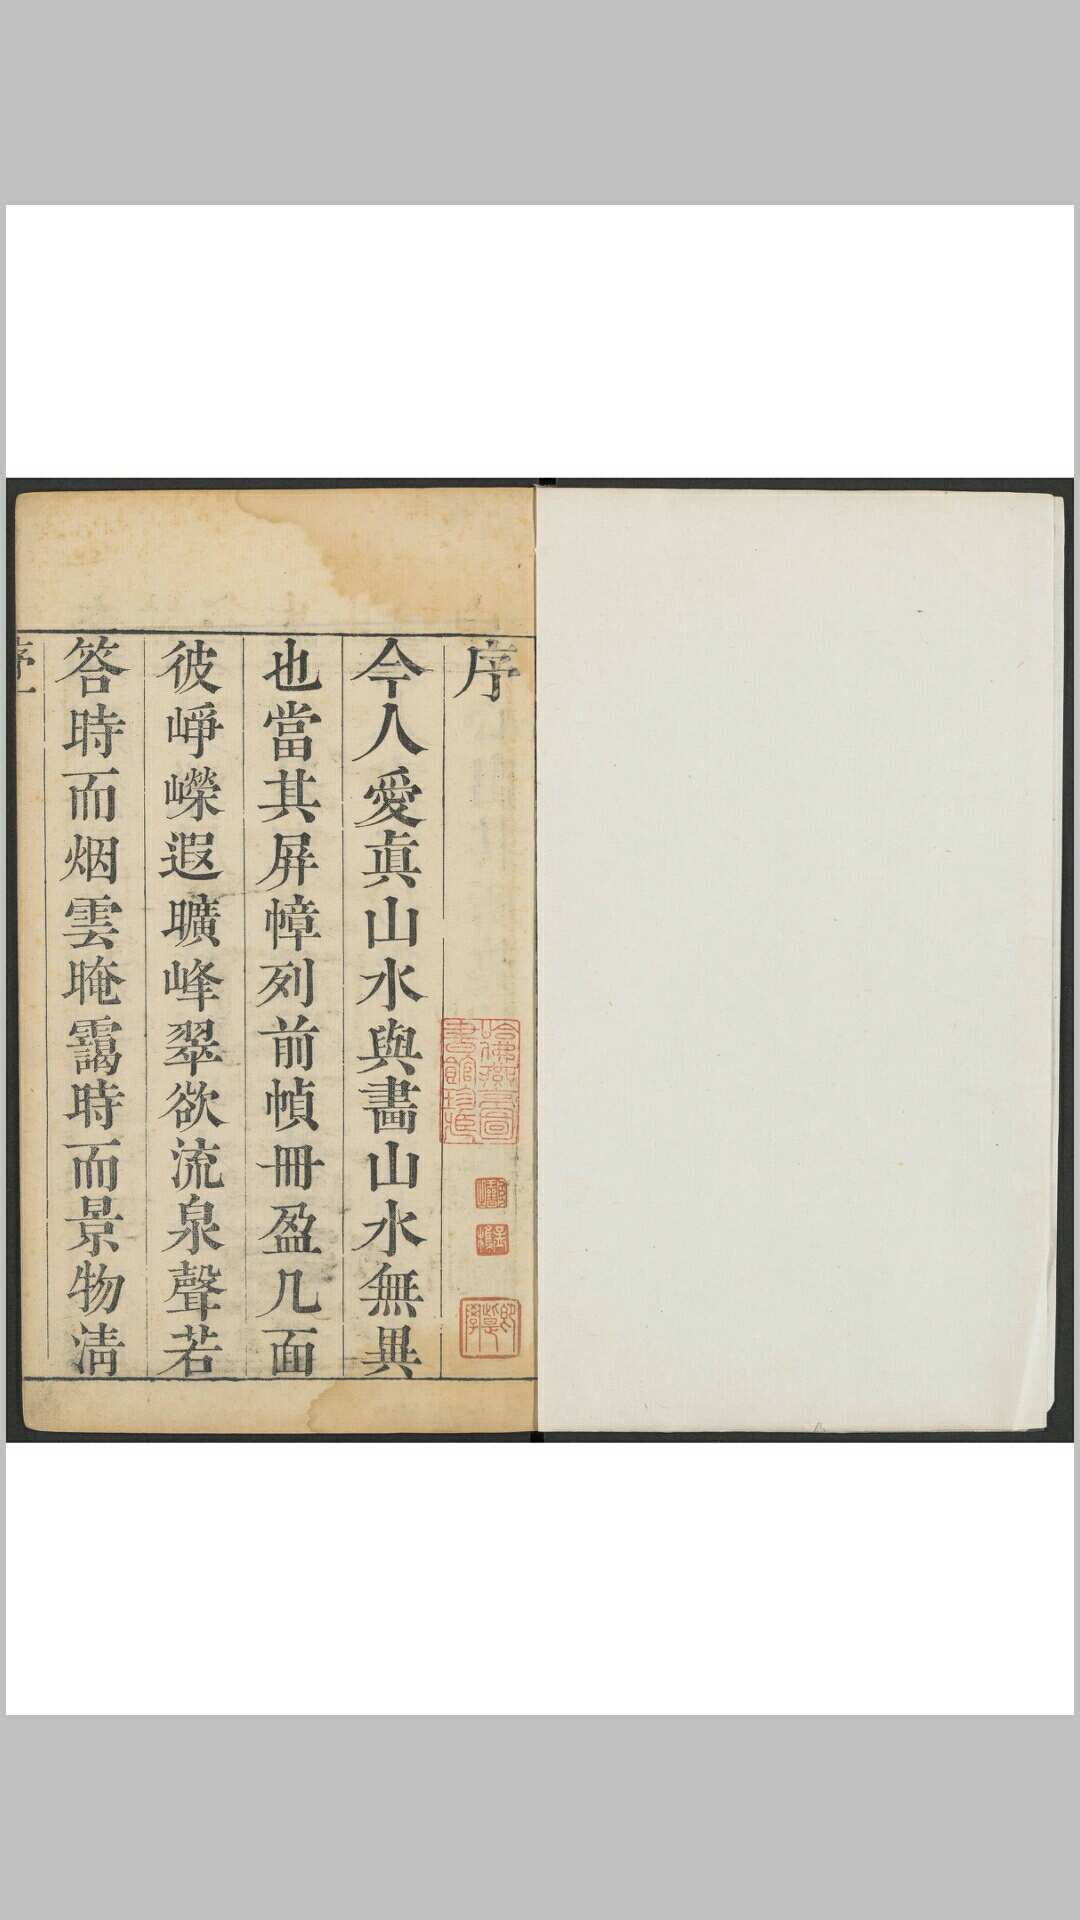 序
今人愛眞山水與畵山水無異
也當其屏幛列前幀冊盈几面
彼崢嶸遐曠峰翠欲流泉聲若
答時而烟雲晻靄時而景物淸
序一
哈佛燕京圖書館珍藏